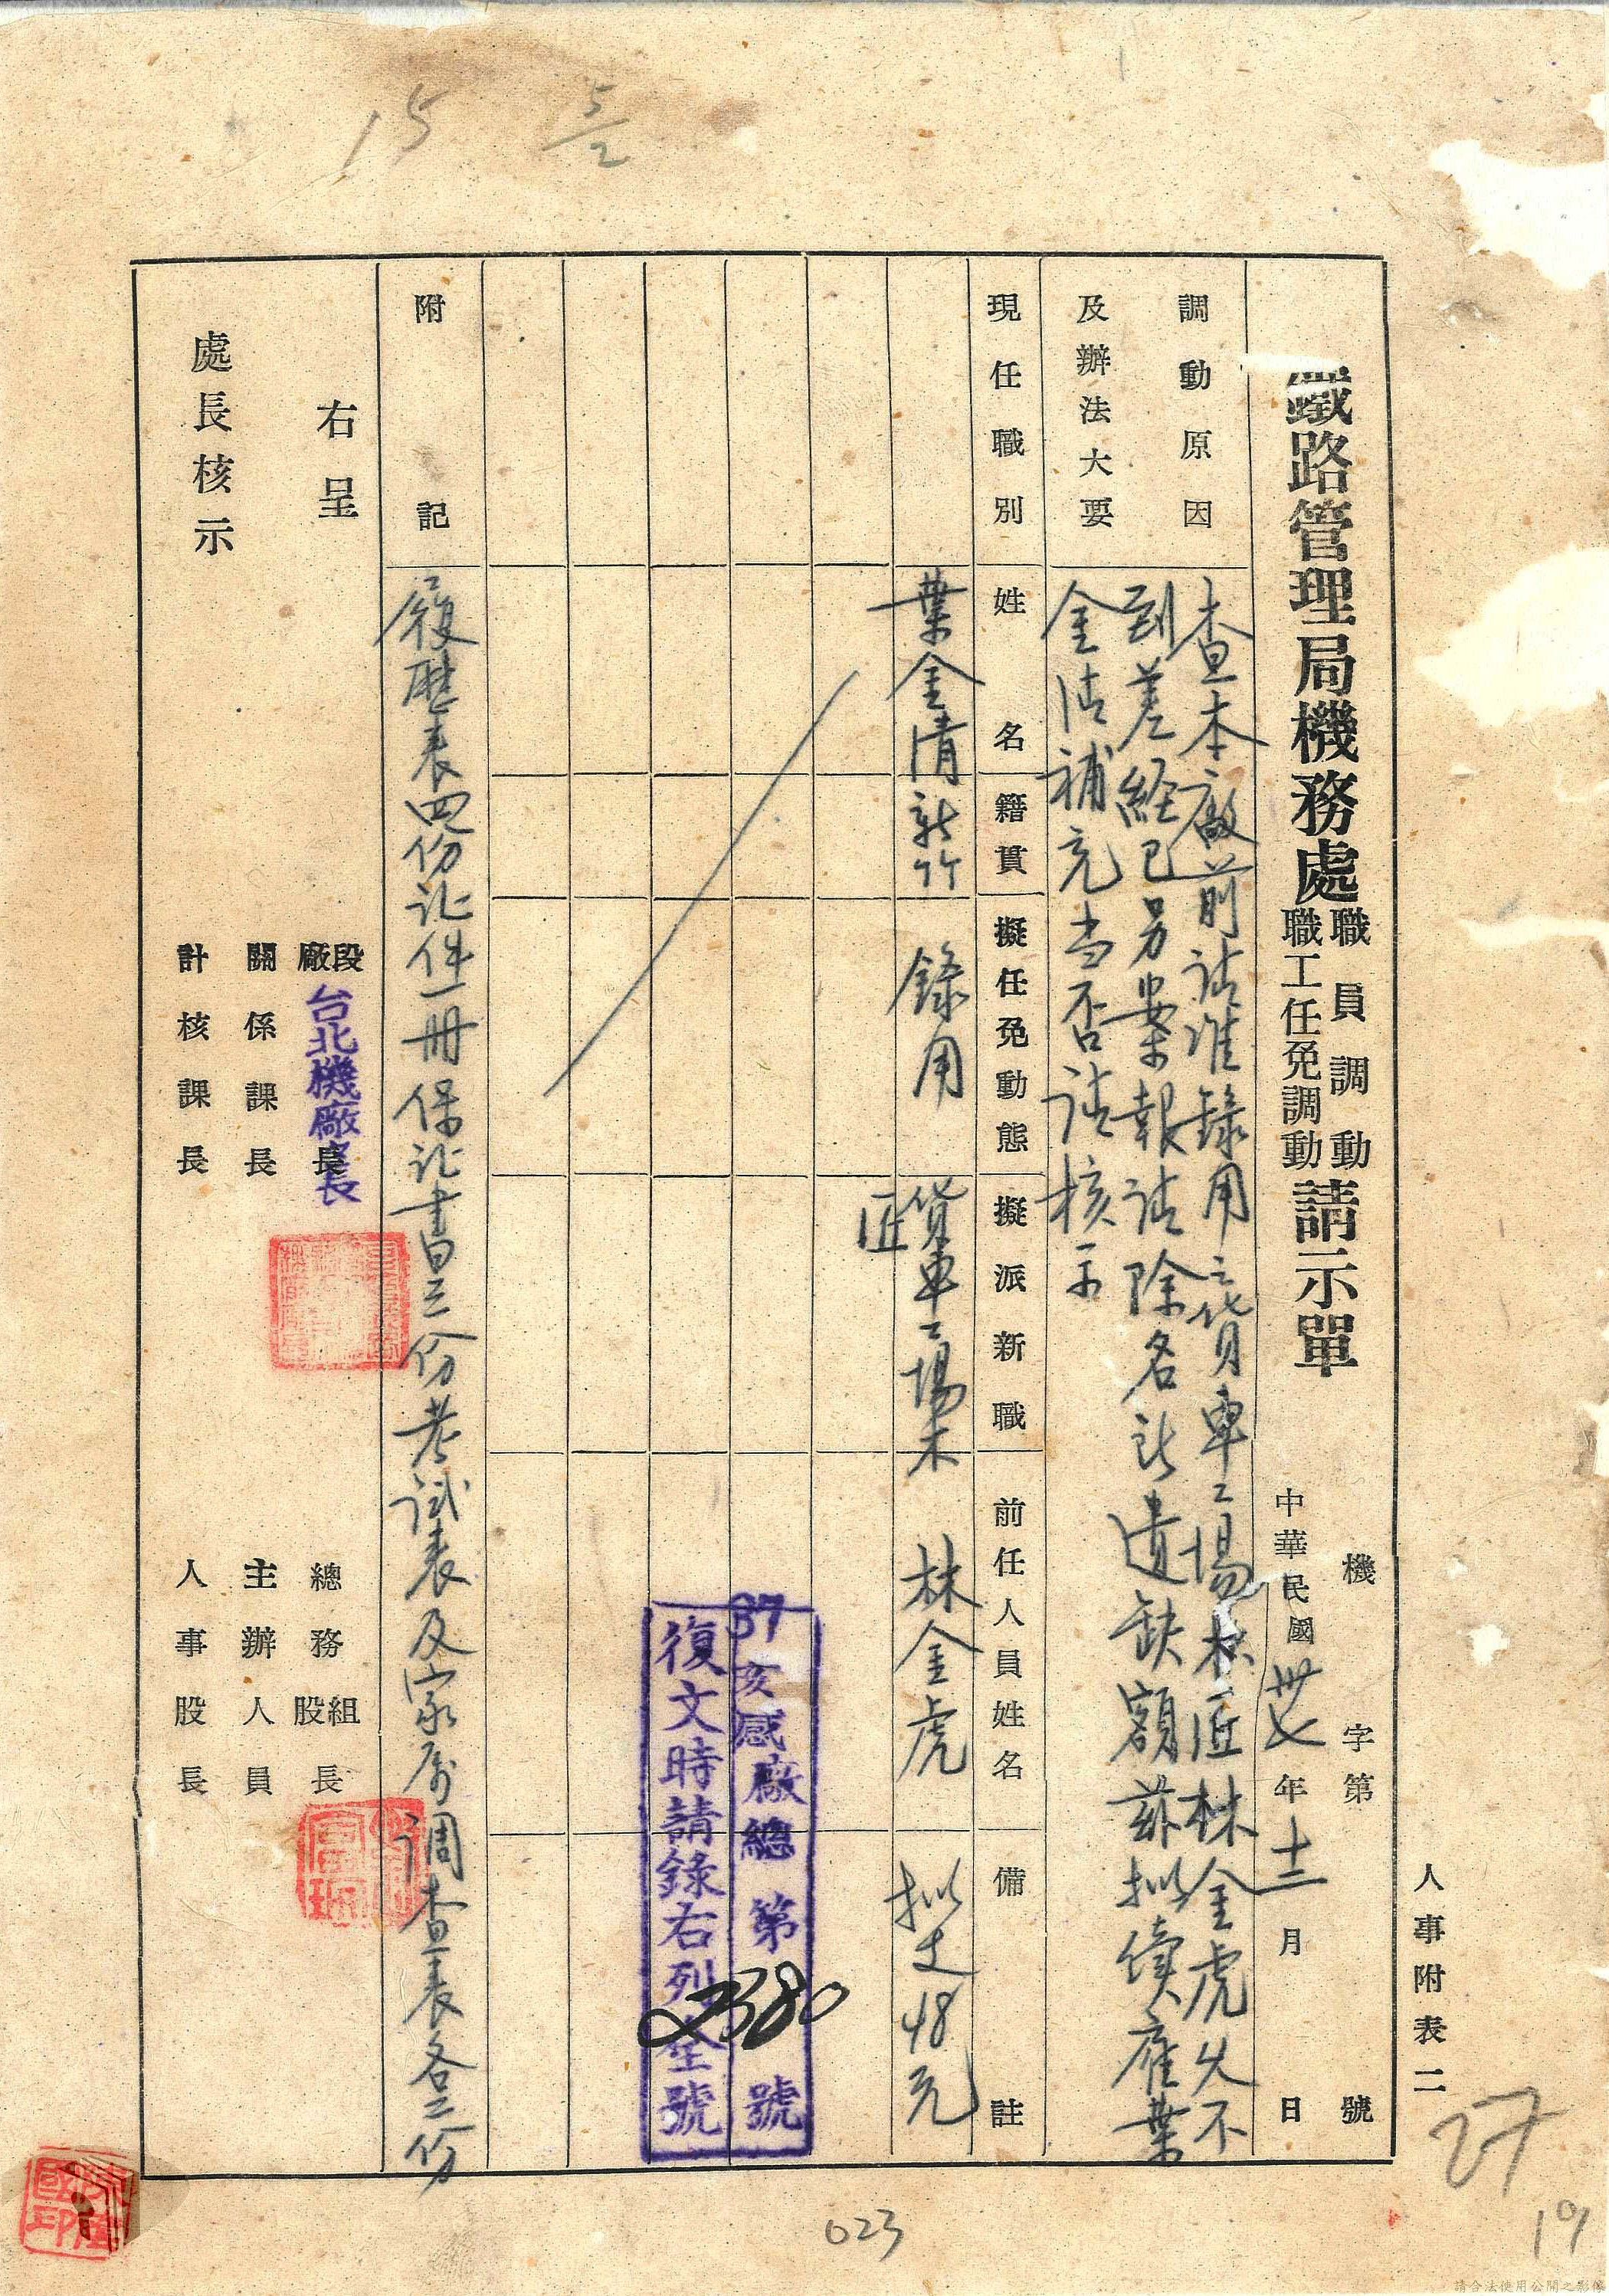 15
5/2
人事附表二
機字第　號
鐵路管理局機務處職員調動職工任免調動請示單
中華民國卅七年十二月　日
調動原因及辦法大要
查本廠前請准錄用之貨車工場木匠林金虎久不
到差經已另案報請除名所遺缺額茲擬續雇葉
金清補充当否請核示
現任職別
姓名
籍貫
擬任免動態
擬派新職
前任人員姓名
備註
葉金清
新竹
錄用
貨車工場木匠
林金虎
拟支48元
37亥感廠總第2380號
復文時請錄右列全號
附記
履歷表四份証件一冊保証書三份考試表及家屬調查表各二份
右呈
處長核示
段廠長
台北機廠廠長
關係課長
計核課長
總務組股長
主辦人員
人事股長
27
19
023
請合法使用公開之影像